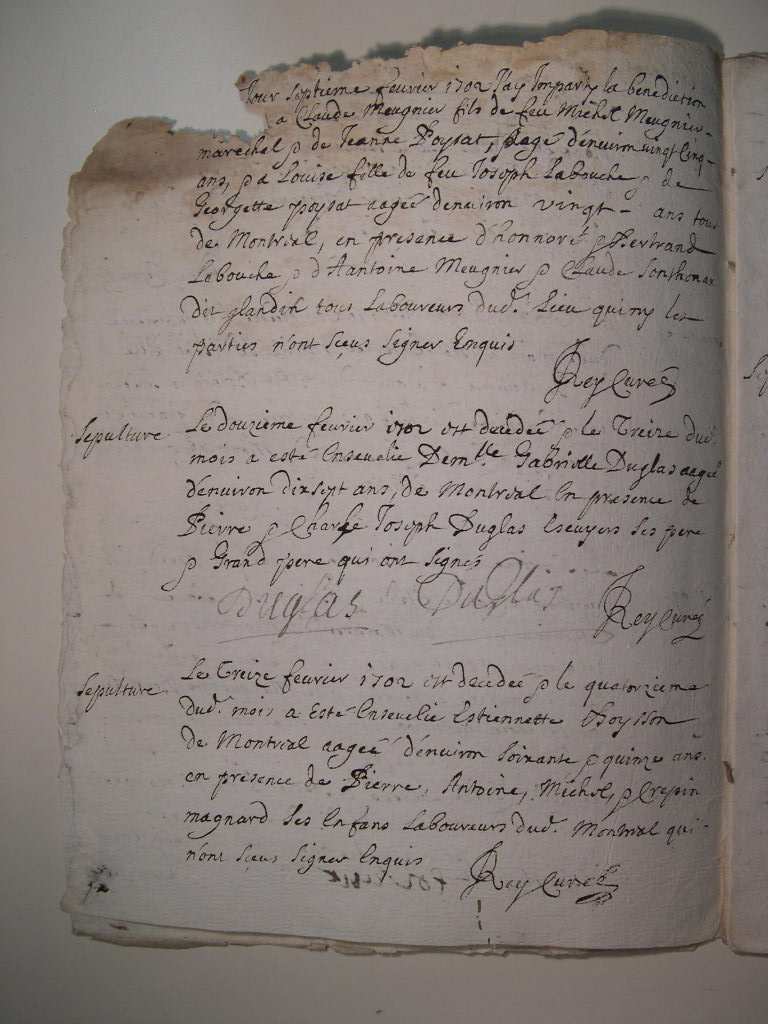 Jour septieme fevrier 1702 J'ay Imparty la benediction
a Claude Meugnier fils de feu Michel Meugnier
marechel & de Jeanne Poysat, aagé d'environ vingt Cinq
ans, & a Louise fille de feu Joseph Labouche & de
Georgette poysat aageé denviron vingt - ans tous
de Montreal, en presence d'honnoré & Bertrand
Labouche & d'Antoine Meugnier & Claude
dit glandih tous Laboureurs dud. Lieu quiny les
parties n'ont sçeus signer Enquis
Rey Curé
Sepulture
Le douzieme fevrier 1702 est decedeé & le Treize dud.
mois a esté Ensevelie Dem.lle Gabrielle Duglas aageé
d'environ dixsept ans, de Montreal En presence de
Pierre & Charle Joseph Duglas Escuyers ses pere
& Grand pere qui ont signés
Duglas Duglas
Rey Curé
Sepulture
Le Treize fevrier 1702 est decedeé & le quatorzieme
dud. mois a Esté Ensevelie Estiennette Boysson
de Montreal aageé d'environ soixante & quinze ans.
en presence de Pierre, Antoine, Michel, & Crepin
magnard ses Enfans Laboureurs dud. Montreal qui
n'ont sçeus signer Enquis
Rey Curé